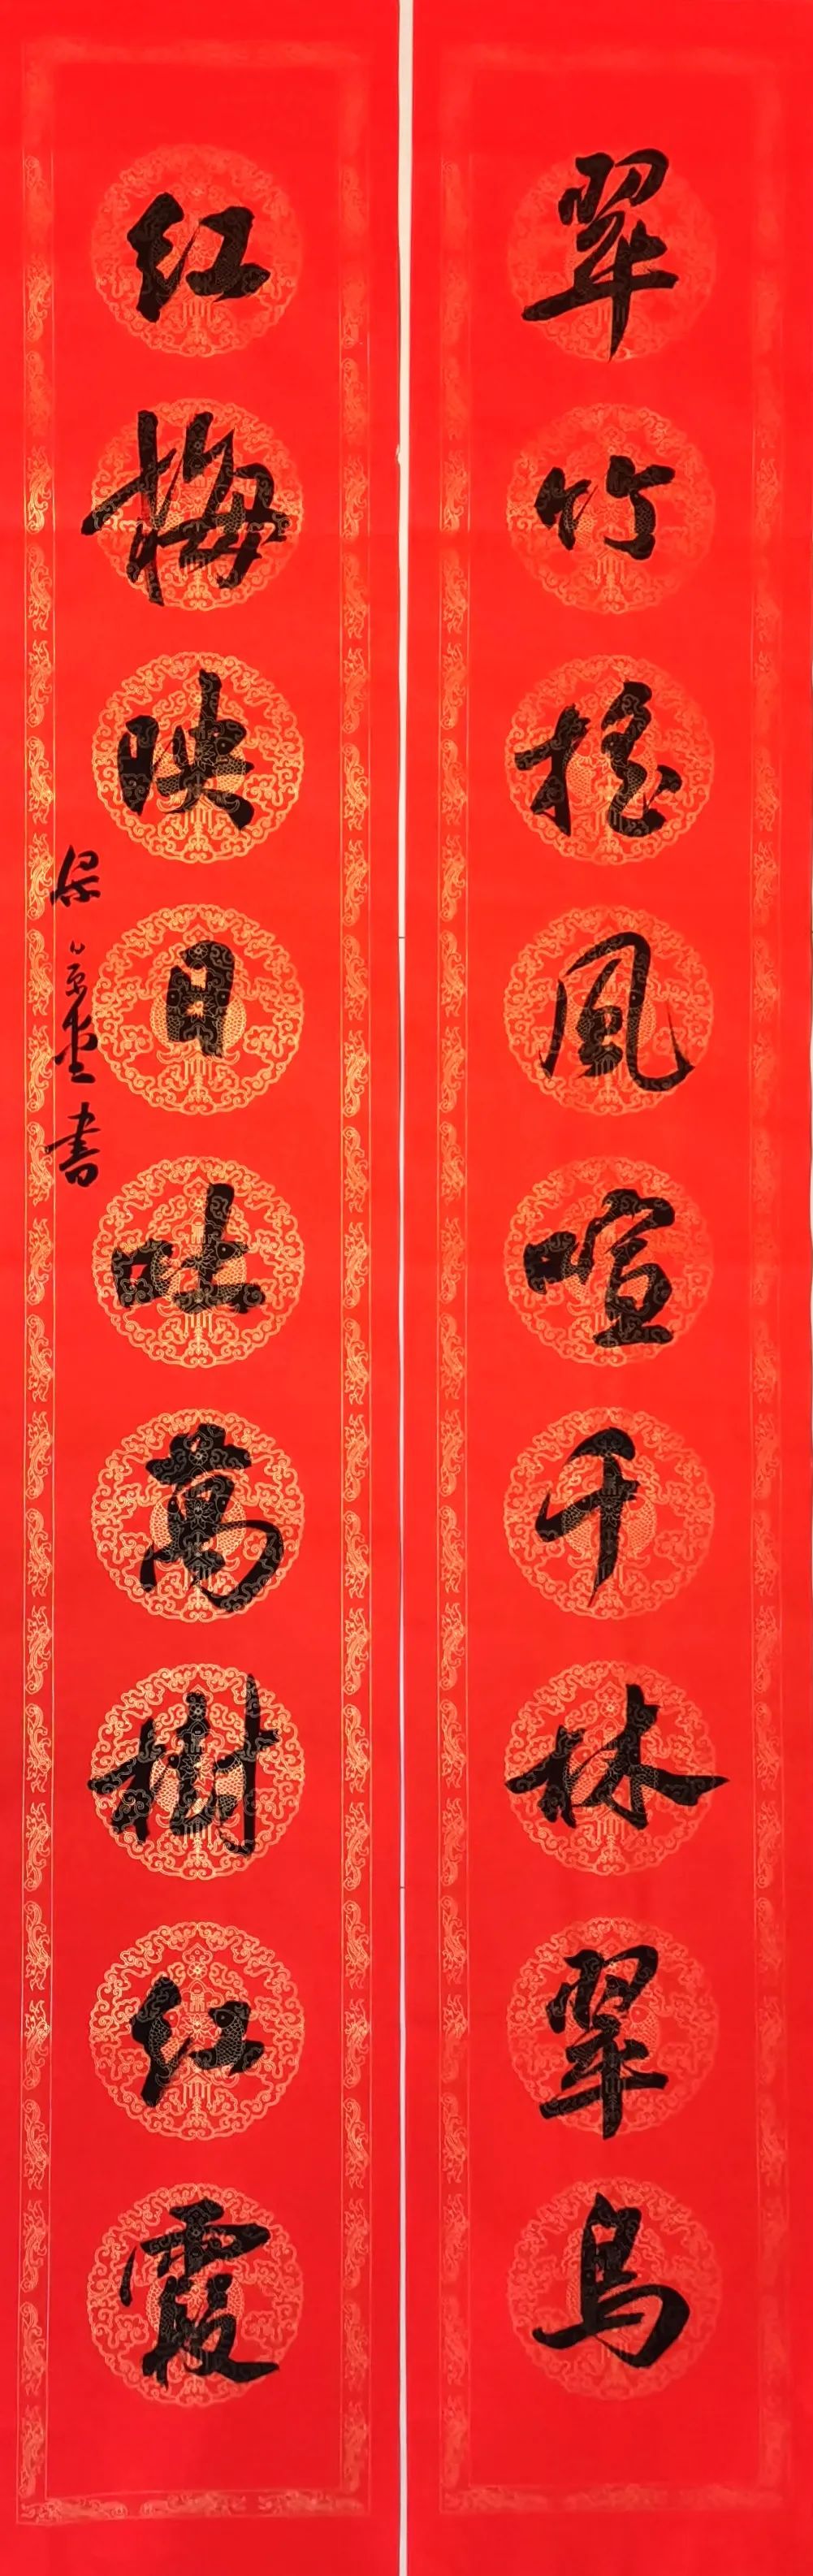 翠竹摇風喧千林翠鳥
红梅映日吐萬樹红霞
書